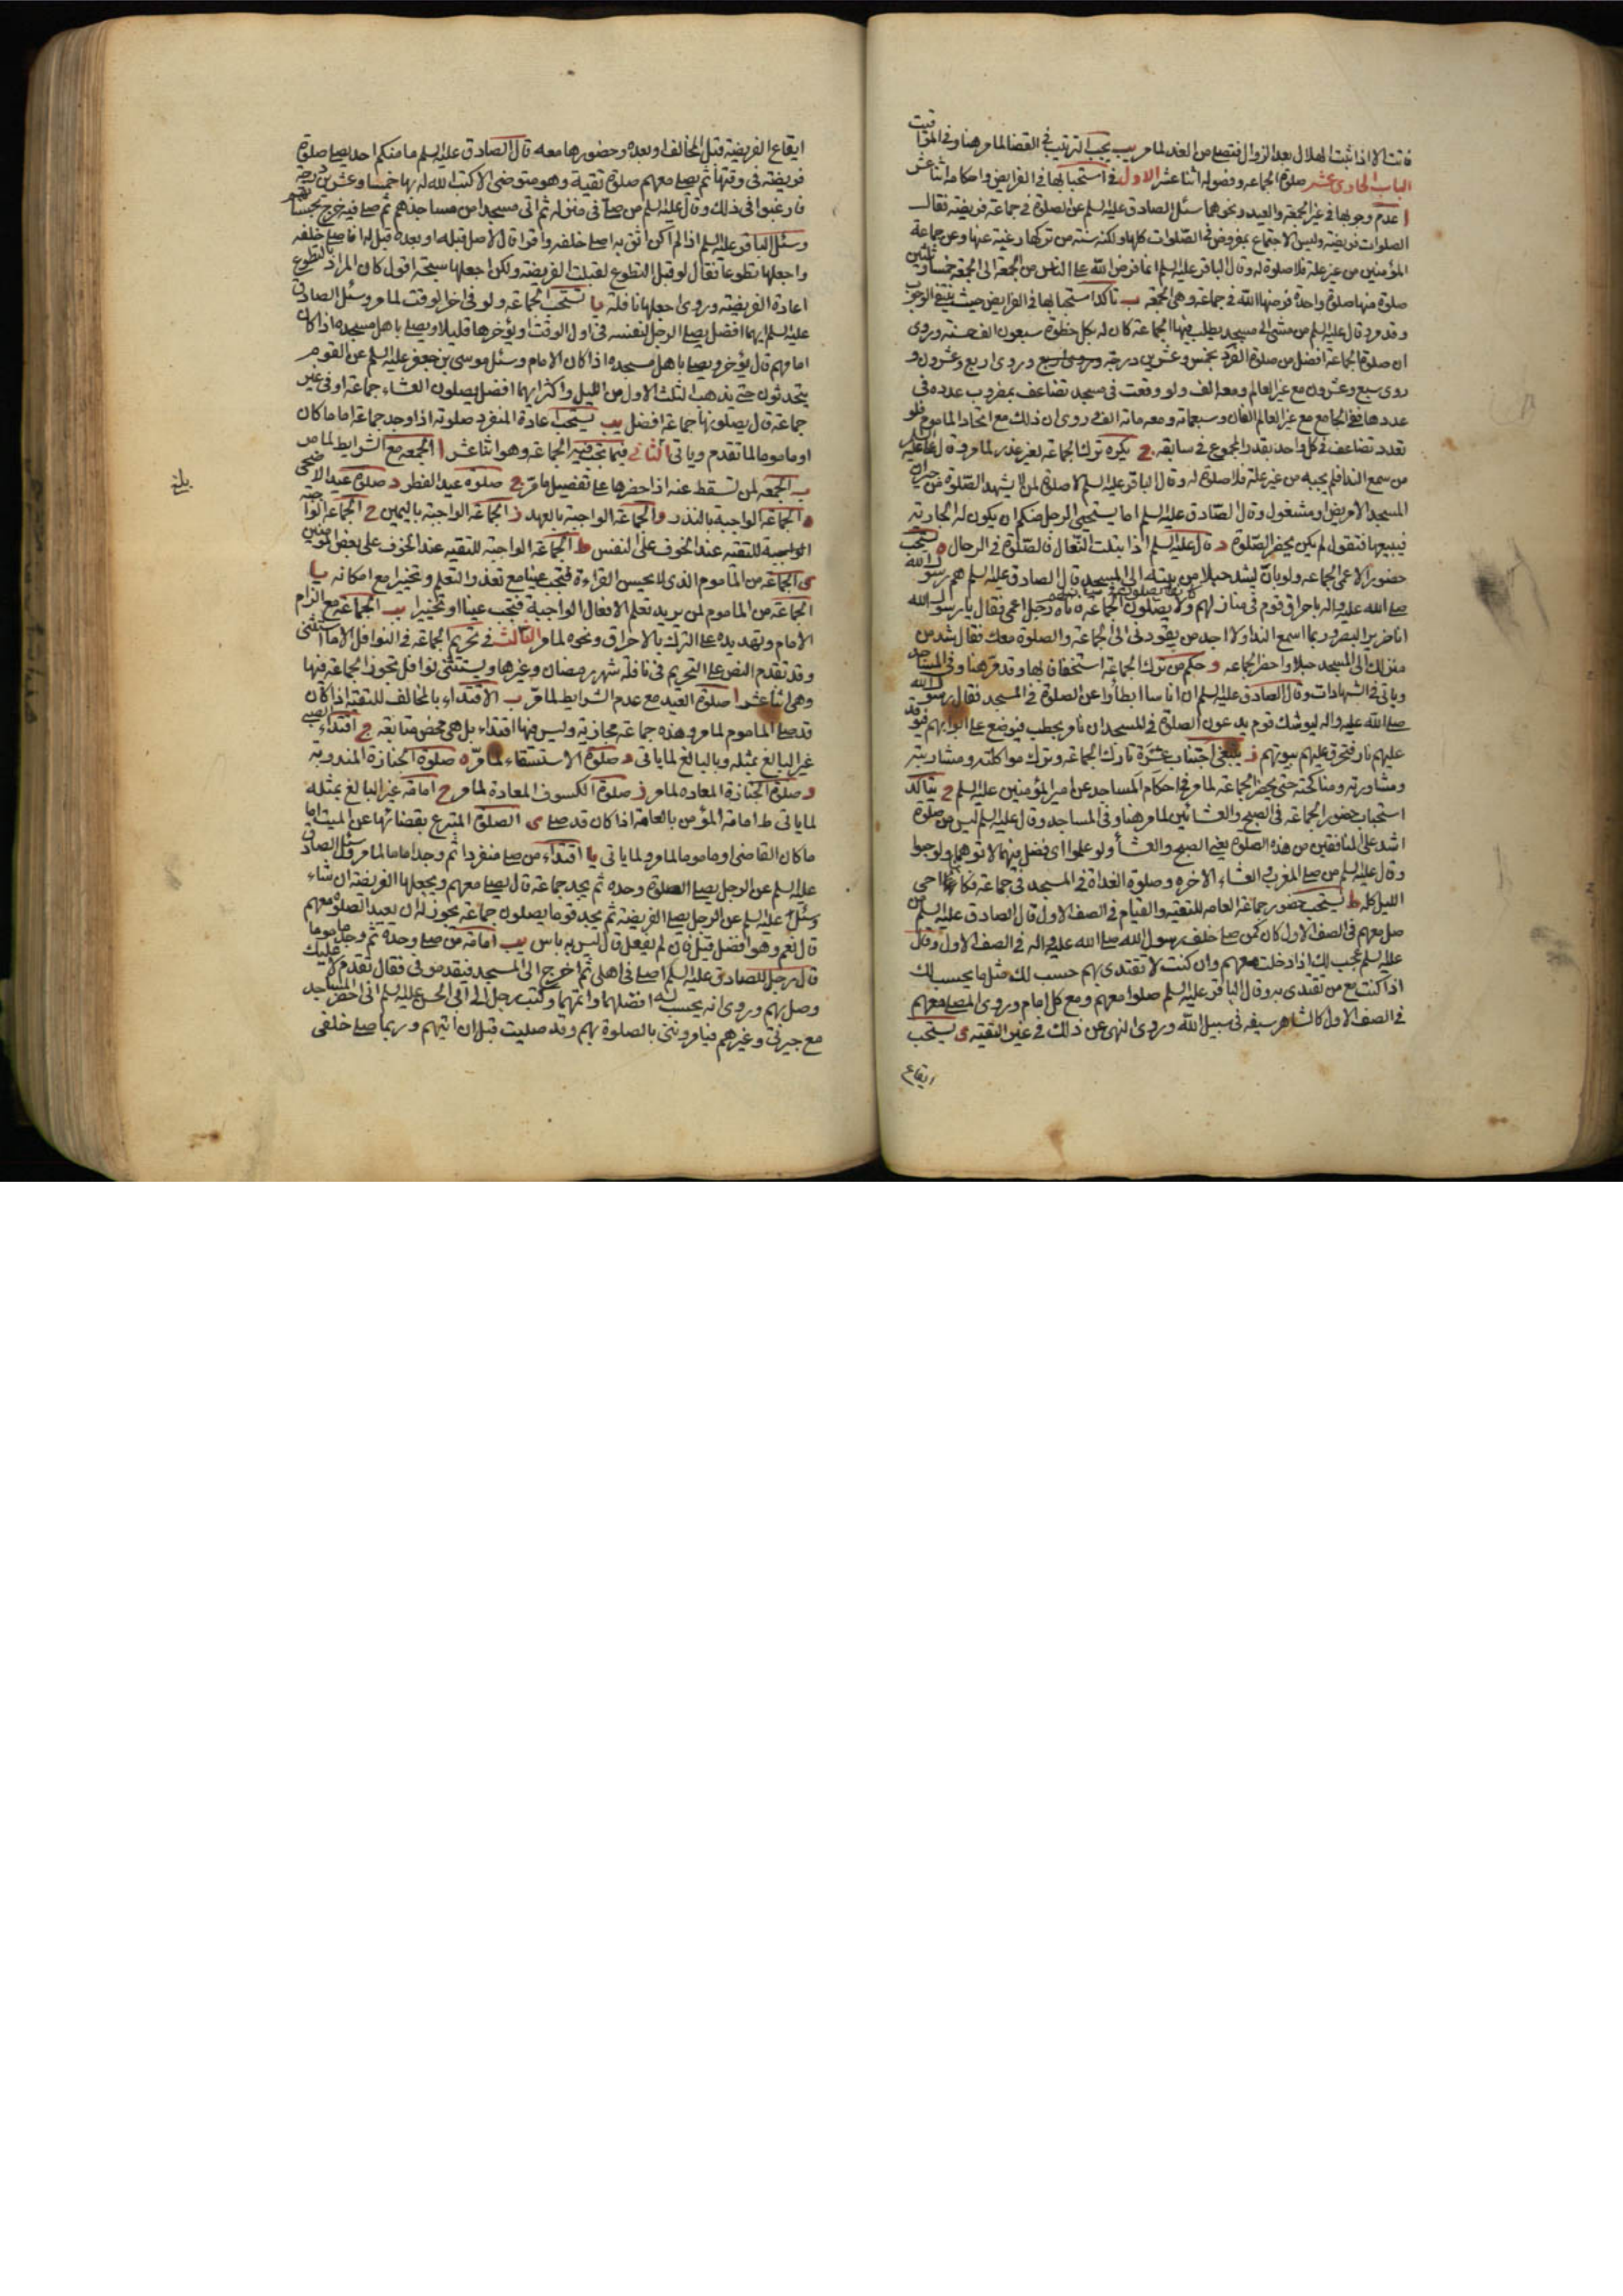 فاتت الا اذا ثبت الهلال بعد الزوال فتصلى من الغد لما مر يب يجب الترتيب في القضا لما مر هنا وفي المواقيت
الباب الحادى عشر صلوة الجماعه وفصوله اثنا عشر الاول في استحبابها في الفرايض واحكامه اثنا عشر
ا عدم وجوبها في غير الجمعة والعيد ونحوهما سئل الصادق عليه السلم عن الصلوة في جماعة فريضة فقال
الصلوات فريضة وليس الاجتماع بمفروض في الصلوات كلها ولكنه سنة من تركها رغبة عنها وعن جماعة
المؤمنين من غير علة فلا صلوة له وقال الباقر عليه السلم انما فرض الله على الناس من الجمعة الى الجمعة خمسا وثلثين
صلوة منها صلوة واحدة فرضها الله في جماعة وهى الجمعة ب تاكد استحبابها في الفرايض حيث ينتفى الوجوب
وقد ورد قال عليه السلم من مشى الى مسجد يطلب فيها الجماعة كان له بكل خطوة سبعون الف حسنة وروى
ان صلوة الجماعة افضل من صلوة الفرد بخمس وعشرين درجة وروى اربع وروى اربع وعشرون و
روى سبع وعشرون مع غير العالم ومعه الف ولو وقعت في مسجد تضاعف بمضروب عدده في
عددها ففي الجامع مع غير العالم الفان وسبعمائة ومعه مائة الف روى ان ذلك مع اتحاد الماموم فلو
تعدد تضاعف في كل واحد بقدر المجموع في سابقه ج يكره ترك الجماعة لغير عذر لما مر وقال على عليه السلم
من سمع النداء فلم يجبه من غير علة فلا صلوة له وقال الباقر عليه السلم لا صلوة لمن لا يشهد الصلوة من جيران
المسجد الا مريض او مشغول وقال الصادق عليه السلم اما يستحيى الرجل منكم ان يكون له الجارية
فيبيعها فتقول لم يكن يحضر الصلوة د قال عليه السلم اذا ابتلت النعال فالصلوة في الرحال ه يستحب
حضور الاعمى الجماعه ولو بان يشد حبلا من بيته الى المسجد قال الصادق عليه السلم هم رسول الله
صلى الله عليه واله باحراق قوم في منازلهم كانوا يصلون في منازلهم ولا يصلون الجماعة فاتاه رجل اعمى فقال يا رسول الله
انا ضرير البصر وربما اسمع النداء ولا اجد من يقودنى الى الجماعة والصلوة معك فقال شد من
منزلك الى المسجد حبلا واحضر الجماعه و حكم من ترك الجماعة استخفافا بها وقد مر هنا وفي المساجد
وياتى في الشهادات وقال الصادق عليه السلم ان اناسا ابطأوا عن الصلوة في المسجد فقال رسول الله
صلى الله عليه واله ليوشك قوم يدعون الصلوة في المسجد ان نامر بحطب فيوضع على ابوابهم فتوقد
عليهم نار فتحرق عليهم بيوتهم ز ينبغى اجتناب عشرة تارك الجماعه وترك مواكلته ومشاربته
ومشاورته ومناكحته حتى يحضر الجماعة لما مر في احكام المساجد عن امير المؤمنين عليه السلم ح يتاكد
استحباب حضور الجماعة في الصبح والعشائين لما مر هنا وفي المساجد وقال عليه السلم ليس من صلوة
اشد على المنافقين من هذه الصلوة يعنى الصبح والعشاء ولو علموا اى فضل فيهما لاتوهما ولو حبوا
وقال عليه السلم من صلى المغرب والعشاء الاخرة وصلوة الغداة في المسجد في جماعة فكانما احيى
الليل كله ط يستحب حضور جماعة العامه للتقيه والقيام في الصف الاول قال الصادق عليه السلم من
صلى معهم في الصف الاول كان كمن صلى خلف رسول الله صلى الله عليه واله في الصف الاول وقال
عليه السلم يحسب لك اذا دخلت معهم وان كنت لا تقتدى بهم حسب لك مثل ما يحسب لك
اذا كنت مع من تقتدى به وقال الباقر عليه السلم صلوا معهم ومع كل امام وروى المصلى معهم
في الصف الاول كالشاهر سيفه في سبيل الله وروى النهى عن ذلك في غير التقيه ى يستحب
ايقاع
ايقاع الفريضة قبل المخالف او بعده وحضورها معه قال الصادق عليه السلم ما منكم احد يصلى صلوة
فريضة في وقتها ثم يصلى معهم صلوة تقية وهو متوضى الا كتب الله له بها خمسا وعشرين درجة
فارغبوا في ذلك وقال عليه السلم من صلى في منزله ثم اتى مسجدا من مساجدهم ثم صلى فيه خرج بحسناتهم
وسئل الباقر عليه السلم اذا لم اكن اثق به اصلى خلفه واقرا قال لا صل قبله او بعده قيل له افاصلى خلفه
واجعلها تطوعا فقال لو قبل التطوع لقبلت الفريضة ولكن اجعلها سبحة اقول كان المراد بالتطوع
اعادة الفريضة وروى اجعلها نافلة يا يستحب الجماعه ولو في اخر الوقت لما مر وسئل الصادق
عليه السلم ايهما افضل يصلى الرجل لنفسه في اول الوقت او يؤخرها قليلا ويصلى باهل مسجده اذا كان
امامهم قال يؤخر ويصلى باهل مسجده اذا كان الامام وسئل موسى بن جعفر عليه السلم عن القوم
يتحدثون حتى يذهب الثلث الاول من الليل واكثر ايهما افضل يصلون العشاء جماعة او في غير
جماعة قال يصلونها جماعة افضل يب يستحب اعادة المنفرد صلوته اذا وجد جماعة اماما كان
او ماموما لما تقدم وياتى الثانى فيما تجب فيه الجماعه وهو اثنا عشر ا الجمعه مع الشرايط لما مر
ب الجمعه لمن تسقط عنه اذا حضرها على تفصيل ما مر ج صلوة عيد الفطر د صلوة عيد الاضحى
ه الجماعة الواجبة بالنذر و الجماعة الواجبة بالعهد ز الجماعة الواجبة باليمين ح الجماعه الواجبة
الواجبة للتقيه عند الخوف على النفس ط الجماعة الواجبة للتقيه عند الخوف على بعض المؤمنين
ى الجماعه من الماموم الذى لا يحسن القراءة فتجب عينا مع تعذر التعلم وتخييرا مع امكانه يا
الجماعة من الماموم لمن يريد تعلم الافعال الواجبة فتجب عينا او تخييرا يب الجماعة مع الزام
الامام وتهديده على الترك بالاحراق ونحوه لما مر الثالث في تحريم الجماعه في النوافل الا ما استثنى
وقد تقدم النص على التحريم في نافلة شهر رمضان وغيرها ويستثنى نوافل تجوز الجماعه فيها
وهى اثنا عشر ا صلوة العيد مع عدم الشرايط لما مر ب الاقتداء بالمخالف للتقية اذا كان
قد صلى الماموم لما مر وهذه جماعة مجازية وليس فيها اقتداء بل هى محض متابعة ج اقتداء الصبى
غير البالغ بمثله وبالبالغ لما ياتى د صلوة الاستسقاء لما مر ه صلوة الجنازة المندوبة
و صلوة الجنازة المعاده لما مر ز صلوة الكسوف المعادة لما مر ح امامة غير البالغ بمثله
لما ياتى ط امامة المؤمن بالعامة اذا كان قد صلى ى الصلوة المتبرع بقضائها عن الميت اماما
ما كان القاضى او ماموما لما مر ولما ياتى يا اقتداء من صلى منفردا ثم وجد اماما لما مر وسئل الصادق
عليه السلم عن الرجل يصلى الصلوة وحده ثم يجد جماعة قال يصلى معهم ويجعلها الفريضة ان شاء
وسئل عليه السلم عن الرجل يصلى الفريضة ثم يجد قوما يصلون جماعة يجوز له ان يعيد الصلوة معهم
قال نعم وهو افضل قيل فان لم يفعل قال ليس به باس يب امامة من صلى وحده ثم وجد ماموما
قال رجل للصادق عليه السلم اصلى في اهلى ثم اخرج الى المسجد فيقدمونى فقال تقدم لا عليك
وصل بهم وروى انه يحسب له افضلهما واتمهما وكتب رجل الى ابى الحسن عليه السلم انى احضر المساجد
مع جيرتى وغيرهم فيامروننى بالصلوة بهم وقد صليت قبل ان اتيهم وربما صلى خلفى
بلغ